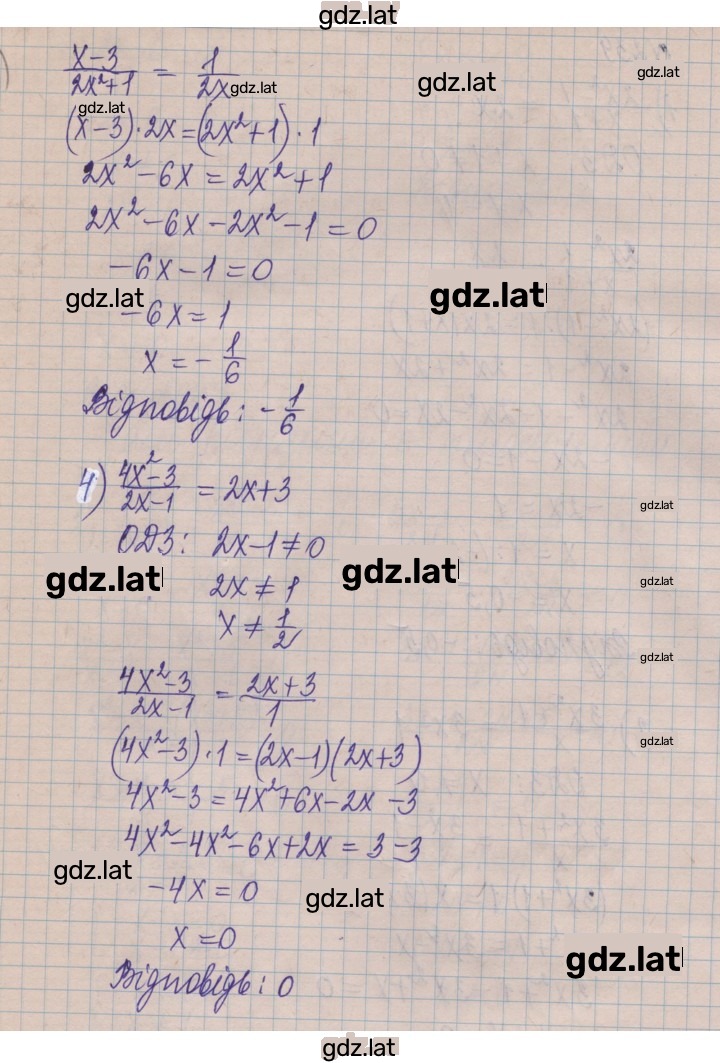 gdz.lat
x-3/2x²+1 = 1/2x gdz.lat gdz.lat gdz.lat
gdz.lat
(x-3)·2x=(2x²+1)·1
2x²-6x=2x²+1
2x²-6x-2x²-1=0
-6x-1=0
gdz.lat gdz.lat
-6x=1
x=-1/6
Відповідь: -1/6
4) 4x²-3/2x-1 = 2x+3
gdz.lat
ОДЗ: 2x-1≠0
gdz.lat gdz.lat gdz.lat
2x≠1
x≠1/2
gdz.lat
4x²-3/2x-1 = 2x+3/1
gdz.lat
(4x²-3)·1=(2x-1)(2x+3)
4x²-3=4x²+6x-2x-3
4x²-4x²-6x+2x=3-3
gdz.lat
-4x=0
gdz.lat
x=0
gdz.lat
Відповідь: 0
gdz.lat